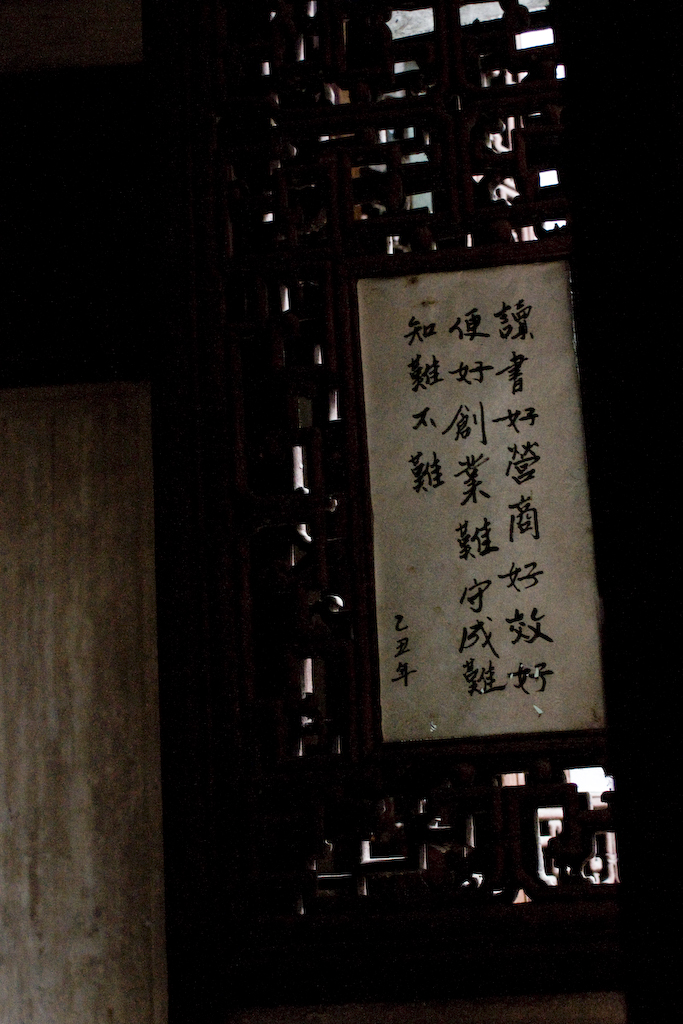 讀書好營商好效好
便好創業難守成難
知難不難
乙丑年